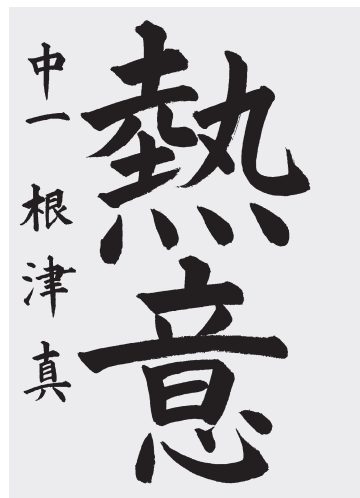 熱意
中一 根津真